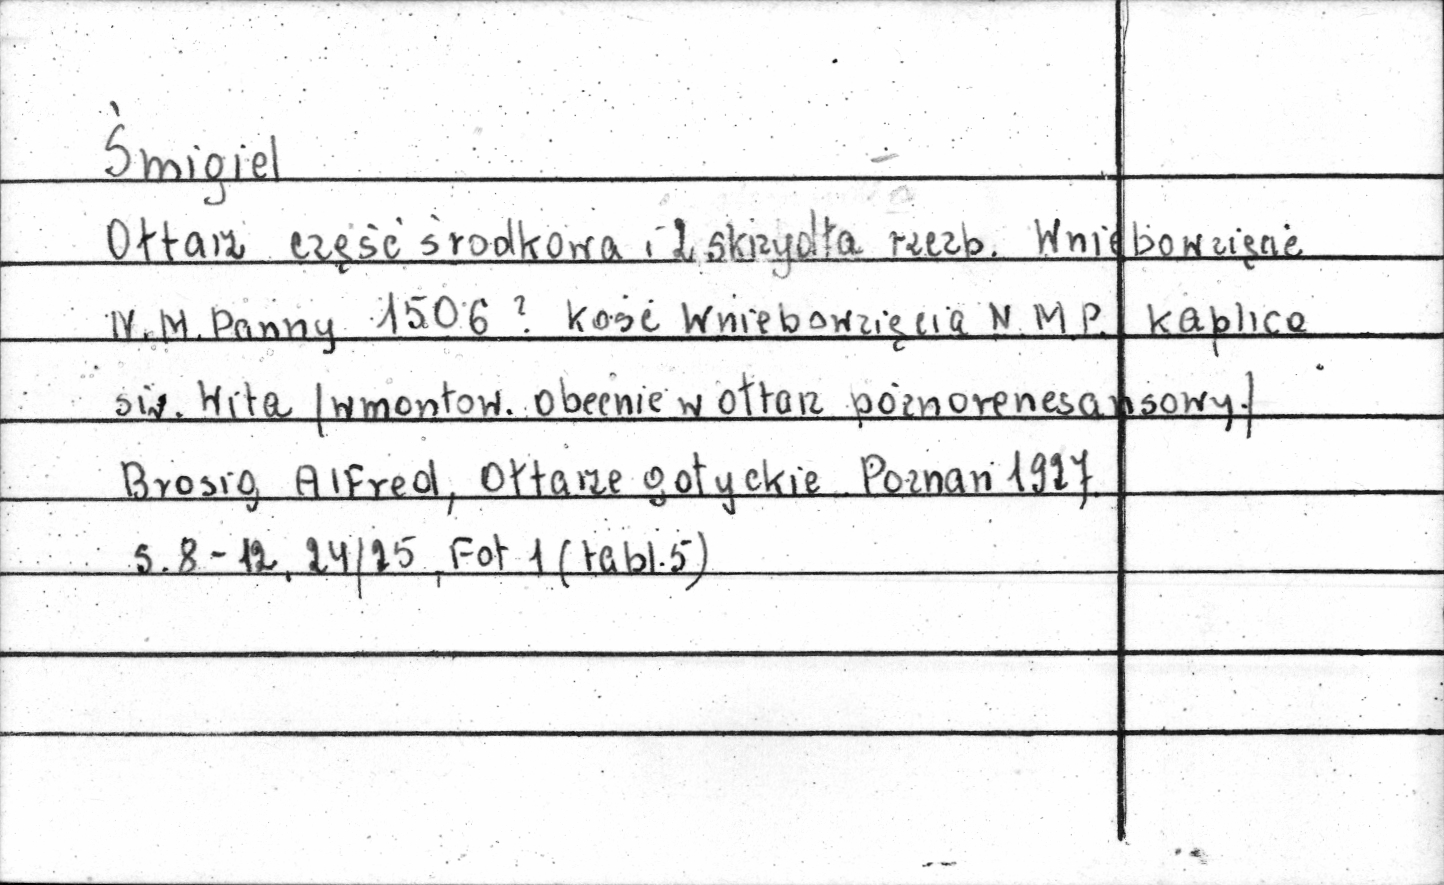 Śmigiel
Ołtarz część środkowa i 2 skrzydła rzeźb. Wniebowzięcie
N. M. Panny 1506? Kość Wniebowzięcia N. M P. kaplica
św. Wita /wmontow. obecnie w ołtarz późnorenesansowy./
Brosig Alfred, Ołtarze gotyckie Poznań 1927.
s. 8-12, 24/25, Fot 1 (tabl. 5)